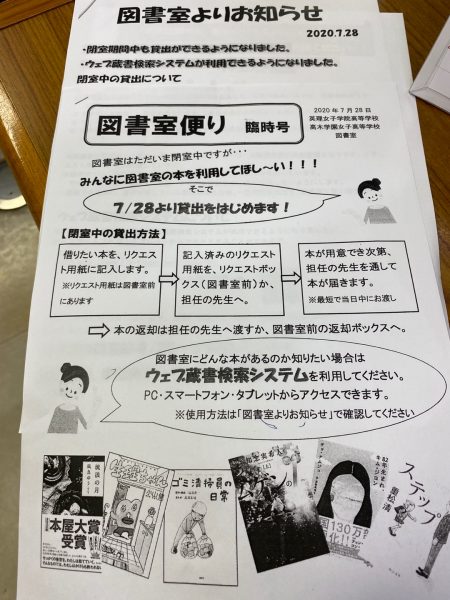 図書室よりお知らせ
2020.7.28
・閉室期間中も貸出ができるようになりました。
・ウェブ蔵書検索システムが利用できるようになりました。
閉室中の貸出について
図書室便り 臨時号
2020年7月28日
英理女子学院高等学校
高木学園女子高等学校
図書室
図書室はただいま閉室中ですが・・・
みんなに図書室の本を利用してほし～い！！！
そこで
7/28より貸出をはじめます！
【閉室中の貸出方法】
借りたい本を、リクエスト用紙に記入します。
※リクエスト用紙は図書室前にあります
記入済みのリクエスト用紙を、リクエストボックス（図書室前）か、担任の先生へ。
本が用意でき次第、担任の先生を通して本が届きます。
※最短で当日中にお渡し
本の返却は担任の先生へ渡すか、図書室前の返却ボックスへ。
図書室にどんな本があるのか知りたい場合は
ウェブ蔵書検索システムを利用してください。
PC・スマートフォン・タブレットからアクセスできます。
※使用方法は「図書室よりお知らせ」で確認してください
流浪の月
凪良ゆう
本屋大賞
受賞
ゴミ清掃員の
日常
82年生まれ、
キム・ジヨン
130万
ステップ
重松清